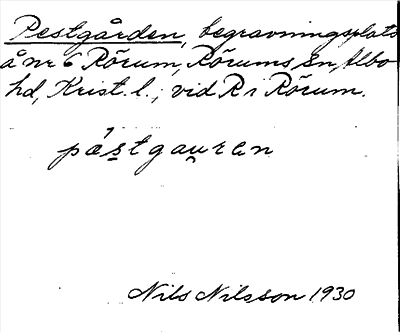 Pestgården, begravningsplats
å nr 6 Rörum, Rörums sn, Albo
hd, Krist. l., vid R i Rörum.
pæstgau̯ʀen
Nils Nilsson 1930